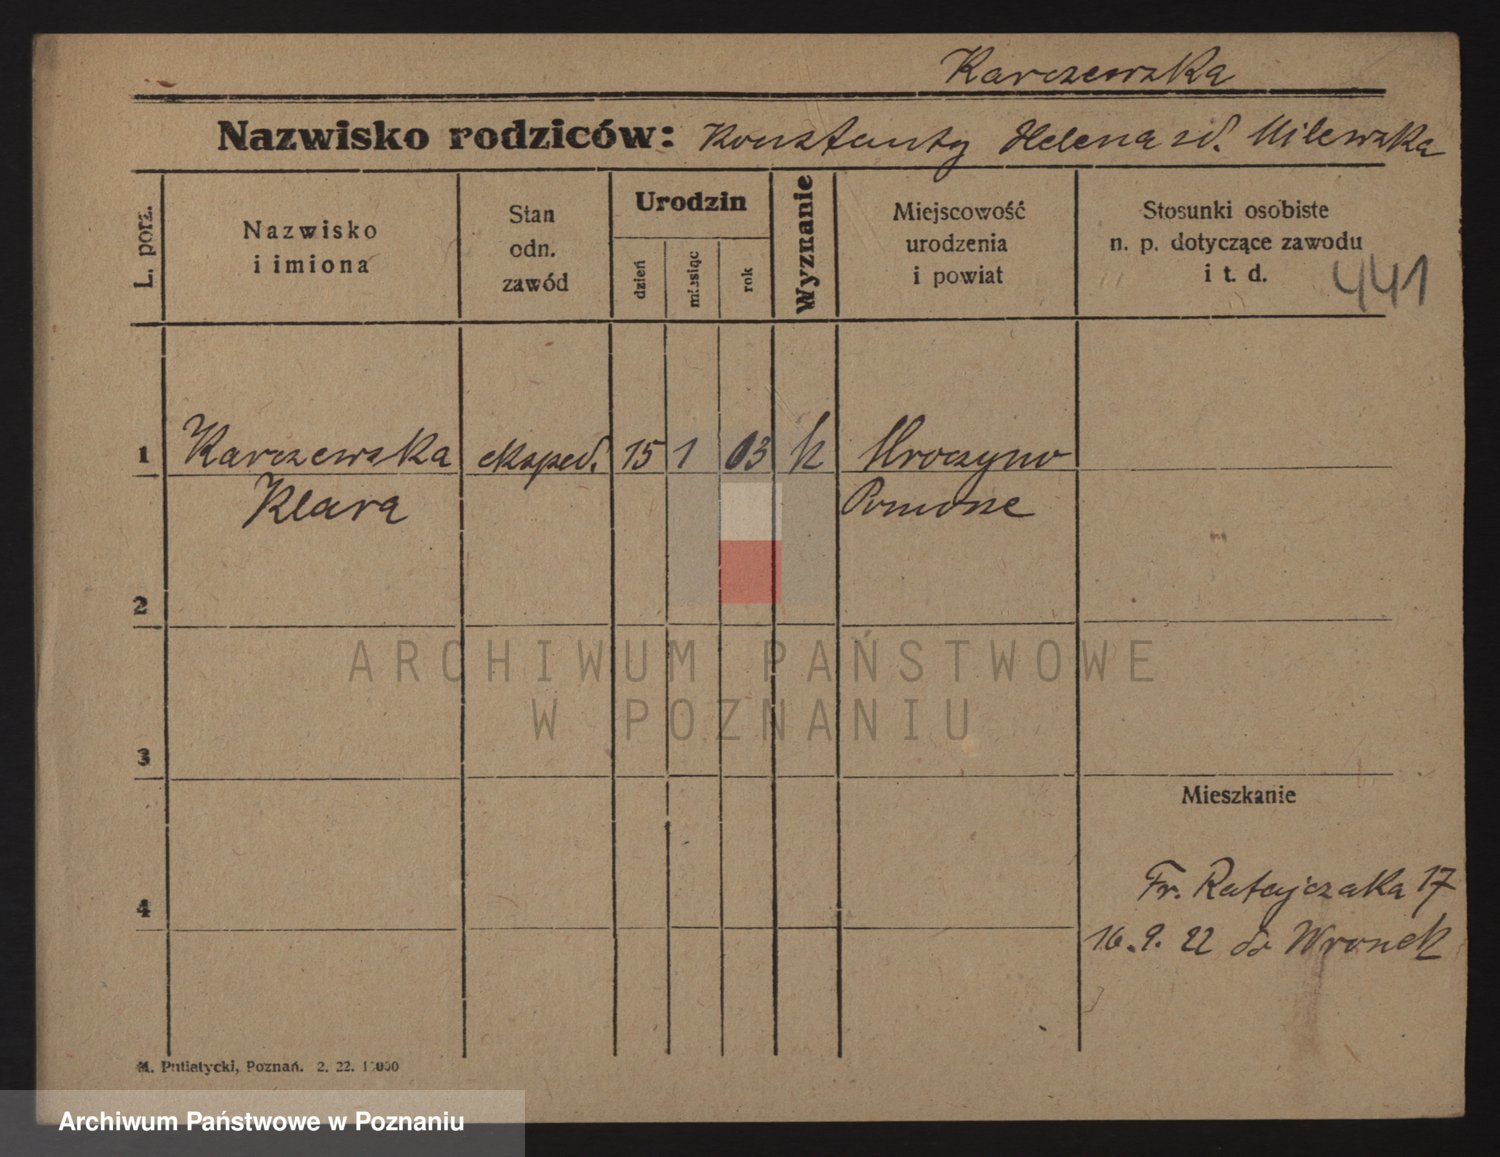 Karczewska
Nazwisko rodziców: Konstanty Helena zd. Milewska
L. porz.
Nazwisko
i imiona
Stan
odn.
zawód
Urodzin
dzień
miesiąc
rok
Wyznanie
Miejscowość
urodzenia
i powiat
Stosunki osobiste
n. p. dotyczące zawodu
i t. d.
441
1 Karczewska eksped. 15 1 03 k Mroczyno
Klara Pomorze
2
3
Mieszkanie
4
Fr. Ratajczaka 17
16. 9. 22 do Wronek
M. Putiatycki, Poznań. 2. 22.
ARCHIWUM PAŃSTWOWE
W POZNANIU
Archiwum Państwowe w Poznaniu